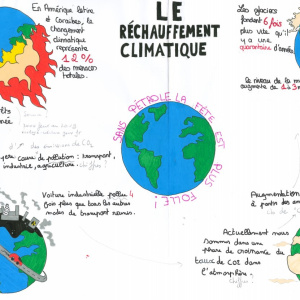 LE
RÉCHAUFFEMENT
CLIMATIQUE
En Amérique latine
et Caraïbes, le
changement
climatique
représente
12%
des menaces
totales.
Les glaciers
fondent 6 fois
plus vite qu'il
y a une
quarantaine d'années
le niveau de la m
augmente de 1 à 3
SANS PÉTROLE LA FÊTE EST PLUS FOLLE !
cause de pollution : transport,
industrie, agriculture.
Voiture industrielle pollue 4
fois plus que tous les autres
modes de transport réunis.
Augmentation
à partir des ann
Actuellement nous
sommes dans une
phase de croissance du
taux de CO2 dans
l'atmosphère.